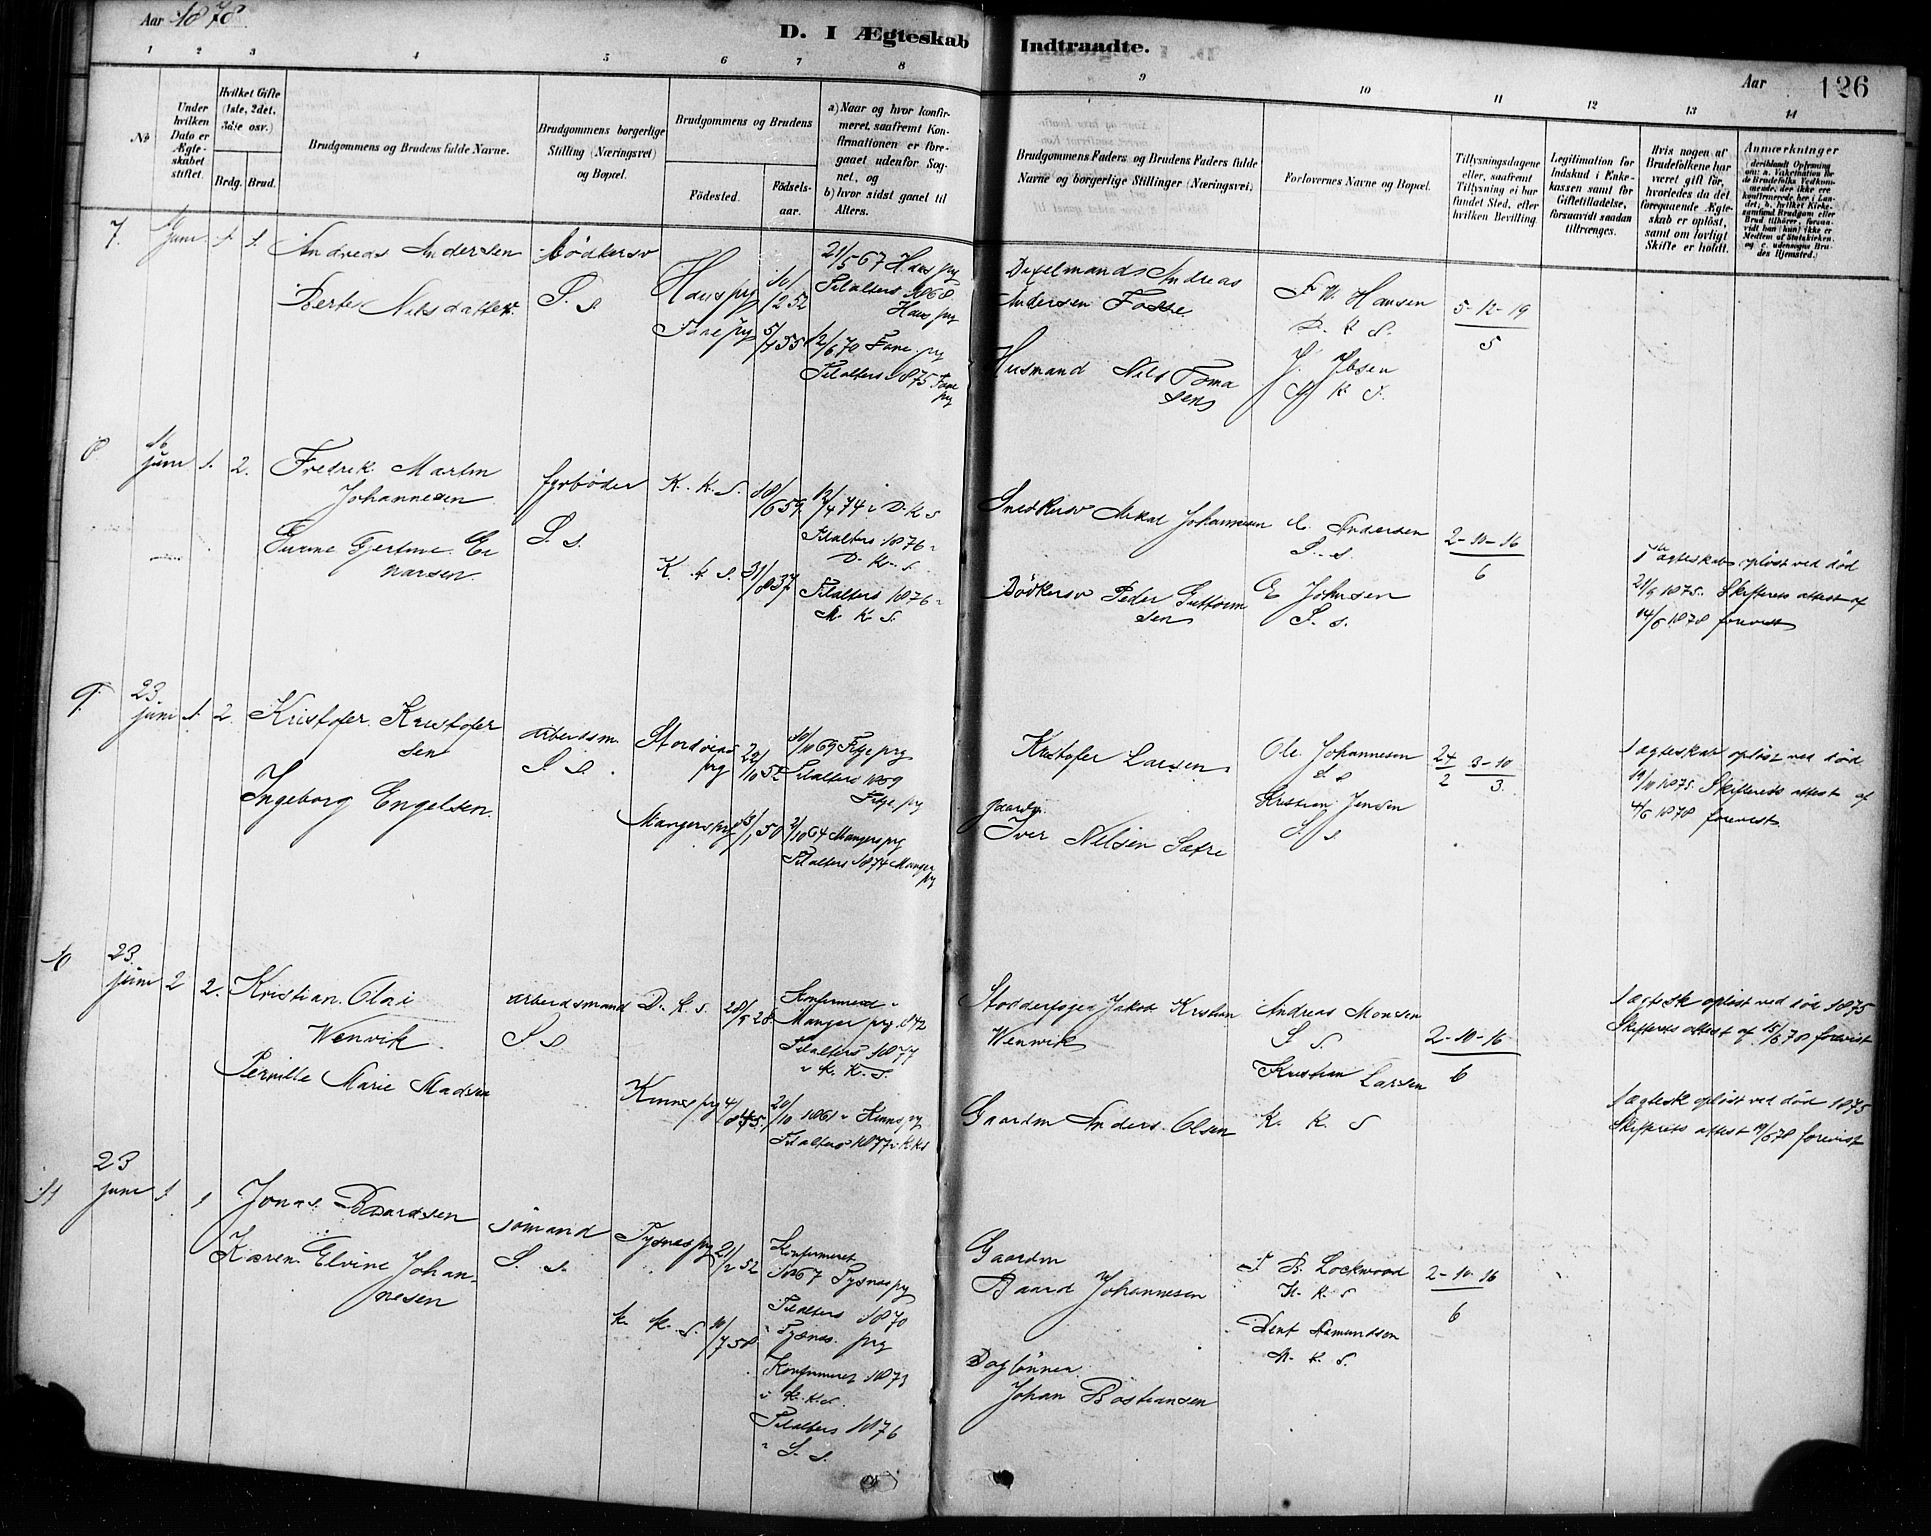 Aar 1878.
D. I Ægteskab Indtraadte.
Aar
126
1 2 3 4 5 6 7 8 9 10 11 12 13 14
No
Under hvilken Dato er Ægteskabet stiftet.
Hvilket Gifte (1ste, 2det, 3die osv.)
Brdg. Brud.
Brudgommens og Brudens fulde Navne.
Brudgommens borgerlige Stilling (Næringsvei) og Bopæl.
Brudgommens og Brudens
Födested.
Födselsaar.
a) Naar og hvor konfirmeret, saafremt Konfirmationen er foregaaet udenfor Sognet, og
b) hvor sidst gaaet til Alters.
Brudgommens Faders og Brudens Faders fulde Navne og borgerlige Stillinger (Næringsvei)
Forlovernes Navne og Bopæl.
Tillysningsdagene eller, saafremt Tillysning ei har fundet Sted, efter hvilken Bevilling.
Legitimation for Indskud i Enkekassen samt for Giftetilladelse, forsaavidt saadan tiltrænges.
Hvis nogen af Brudefolkene har været gift før, hvorledes da det foregaaende Ægteskab er opløst, samt om lovligt Skifte er holdt.
Anmærkninger
7. Juni 1. 1.
Andreas Andersen
Berte Nilsdatter
Bödkersv
S. s.
Haus prg
Fane prg 5/7 55
21/5 67 Haus prg
Til alters 1868
Haus prg
12/6 70 Fane prg
Til alters 1875 Fane prg
Andreas
Andersen Fosse
Husmand Nils Tomasen
F W Hansen
D. k S.
J. Ibsen
N K S.
5-12-19
5
8. 16 juni 1. 2.
Fredrik Martin
Johannesen
fyrbøder
S. s.
K. K. S.
K. k S. 31/8 37
12/4 74 i D. K s
Til alters 1876 i
D. K. S.
Til alters 1876 i
N. K S.
Snedkersv Mikal Johannesen
Bödkersv Peder Guttormsen
C. Andersen
S. s.
E Johnsen
S. s.
2-10-16
6
1ste ægteskab opløst ved død
21/9 1875. Skifterets attest af
14/6 1878 forevist
9. 23 juni 1. 2.
Kristofer Kristofersen
Ingeborg Engelsen
arbeidsm.
S. s.
prg 22/10 52
Mangers prg
10/10 69 Fitje prg
Til alters 1869
Fitje prg
2/10 64 Mangers prg
Til alters 1874 Manger prg
Kristofer Larsen
gaardm
Iver Nilsen Sætre
Ole Johannesen
S s
Kristian Jensen
S. s
24/2 3-10
3.
1 ægteskab opløst ved død
19/11 1875. Skifterets attest af
4/6 1878 forevist
10 23 juni 2 2.
Kristian Olai
Wenvik
Pernille Marie Madsen
arbeidsmand
S s
D. k s.
Kinns prg
Konfirmered i
Manger prg 1842
Til alters 1877
i K. K. S.
20/10 1861 i Kinns prg
Til alters 1877 i K k s
Jakob Kristian
Wenwik
Gaardm Anders Olsen
Andreas Monsen
S s.
Kristian Larsen
K. K. S
2-10-16
6
1 ægtesk opløst ved død 1875
Skifterets attest af 15/6 78 forevist
1 ægtesk opløst ved død 1875
Skifterets attest 19/6 78 forevist
11 23 juni 1. 1
Jonas Baardsen
Karen Elvine Johannesen
sømand
S. s.
Tysnes prg 21/2 52
k. k. S. 10/7 58
Konfirmeret
1867 Tysnes prg
Til alters 1870
i Tysnes prg
Konfirmeret 1873
i k. k. s.
Til alters 1876
i S. s.
Gaardm
Baard Johannesen
Daglönner
Johan Bastiansen
F. B. Lockwood
N. k s
Bent Asmundsen
N. k. S.
2-10-16
6